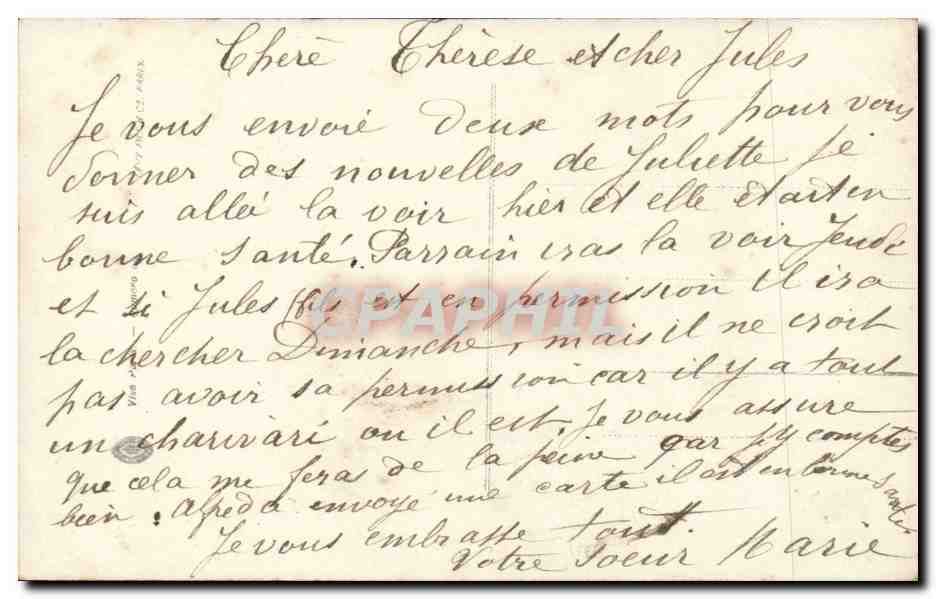 Cheré Thérèse et cher Jules
Je vous envoié deux mots pour vous
donner des nouvelles de Juliette je
suis allée la voir hier et elle etait en
bonne santé. Parrain iras la voir Jeudi
et si Jules fils est en permission il ira
la chercher Dimanche, mais il ne croit
pas avoir sa permission car il y a tout
un charivari ou il est. Je vous assure
que cela me feras de la peine car j'y comptes
bien. Alfred a envoyé une carte il est en bonne santé.
Je vous embrasse tout.
Votre Soeur Marie
CPAPHIL